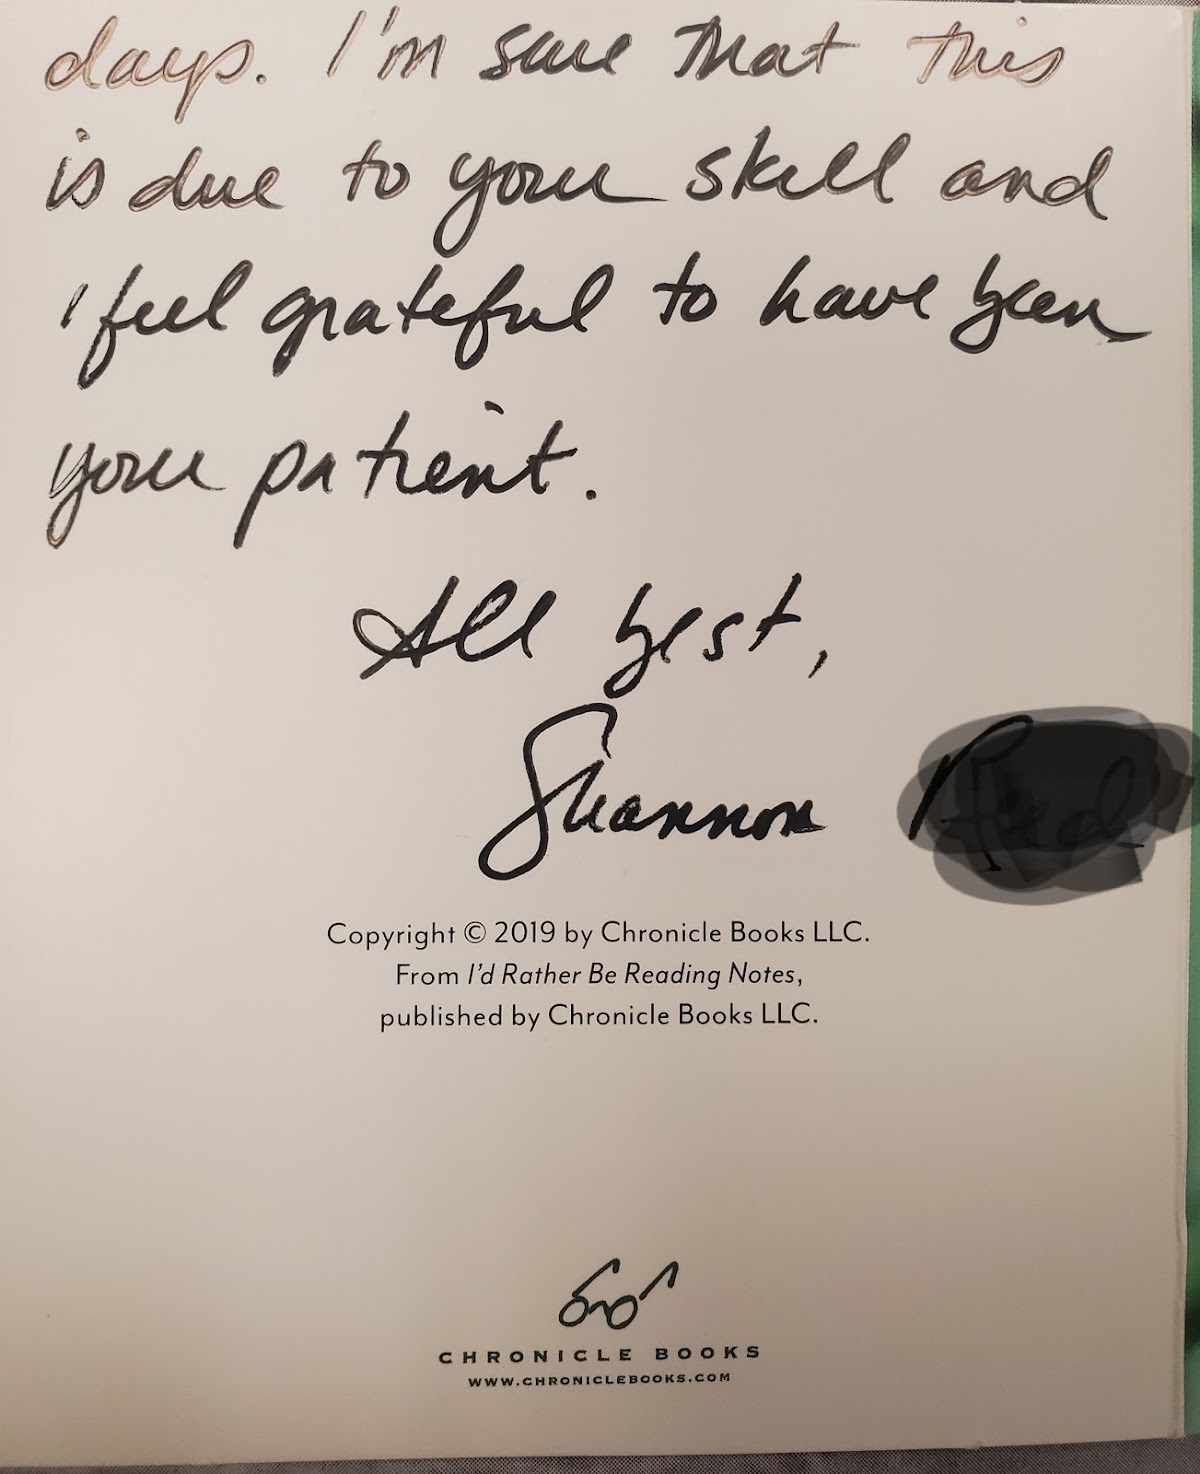 days. I'm sure that this
is due to your skill and
I feel grateful to have been
your patient.
All best,
Shannon
Copyright © 2019 by Chronicle Books LLC.
From I'd Rather Be Reading Notes,
published by Chronicle Books LLC.
CHRONICLE BOOKS
WWW.CHRONICLEBOOKS.COM